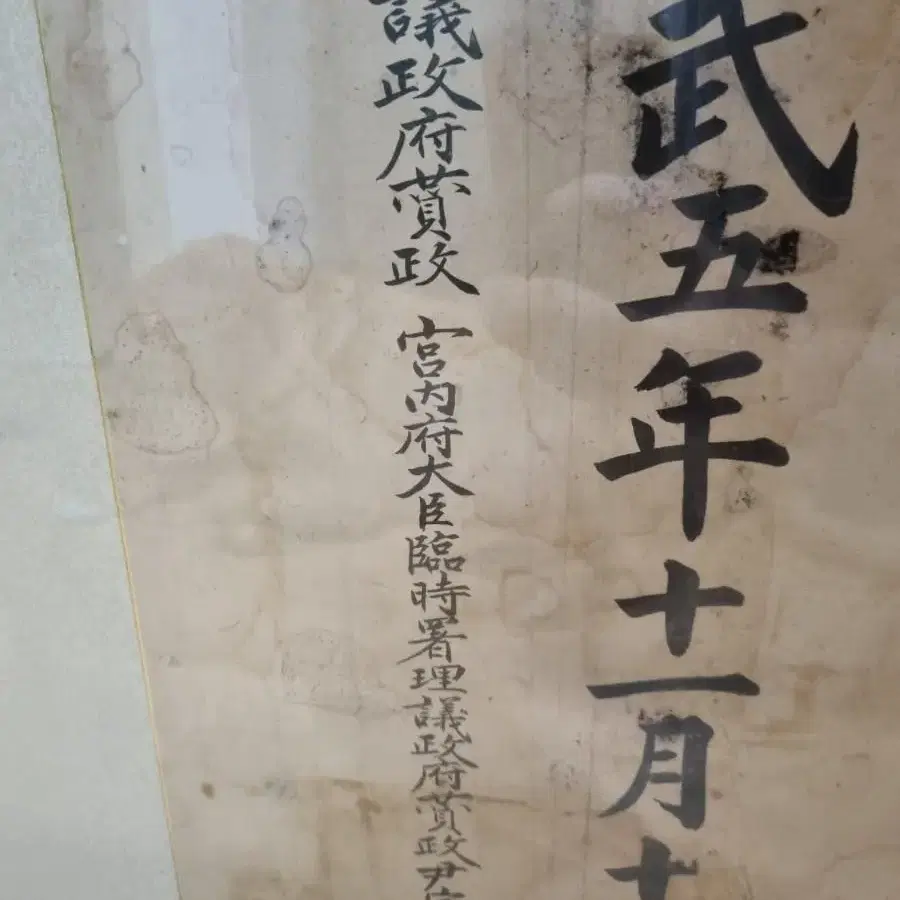 武五年十一月十
議政府贊政 宮内府大臣臨時署理議政府贊政尹